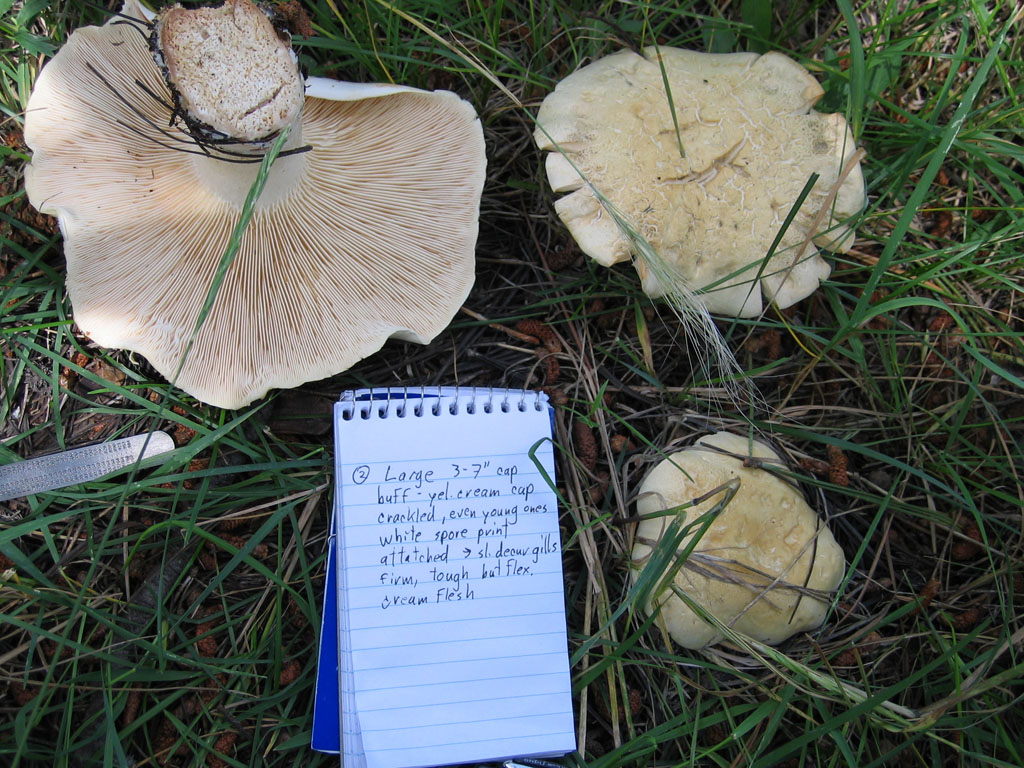 ② Large 3-7" cap
buff - yel. cream cap
crackled, even young ones
white spore print
attatched → sl. decur gills
Firm, tough but flex.
Cream Flesh